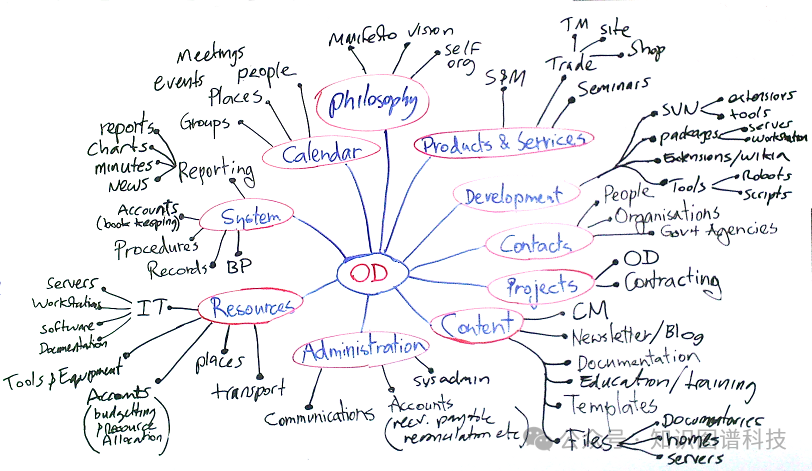 manifesto
vision
self
org
Philosophy
Meetings
events
people
Places
Groups
Calendar
S&M
TM
site
Shop
Trade
Seminars
Products & Services
SVN
extensions
tools
packages
server
workstation
Extensions/wikia
Tools
Robots
Scripts
Development
People
Organisations
Gov't Agencies
Contacts
OD
Contracting
Projects
reports
charts
minutes
News
Reporting
Accounts
(book keeping)
Procedures
Records
BP
System
OD
Servers
Workstations
software
Documentation
IT
Resources
Tools & Equipment
Accounts
(budgetting
resource
Allocation)
places
transport
Administration
Communications
Accounts
(recv. payable
reconciliation etc)
sysadmin
Content
CM
Newsletter/Blog
Documentation
Education/training
Templates
Files
Documentaries
homes
servers
公众号·知识图谱科技